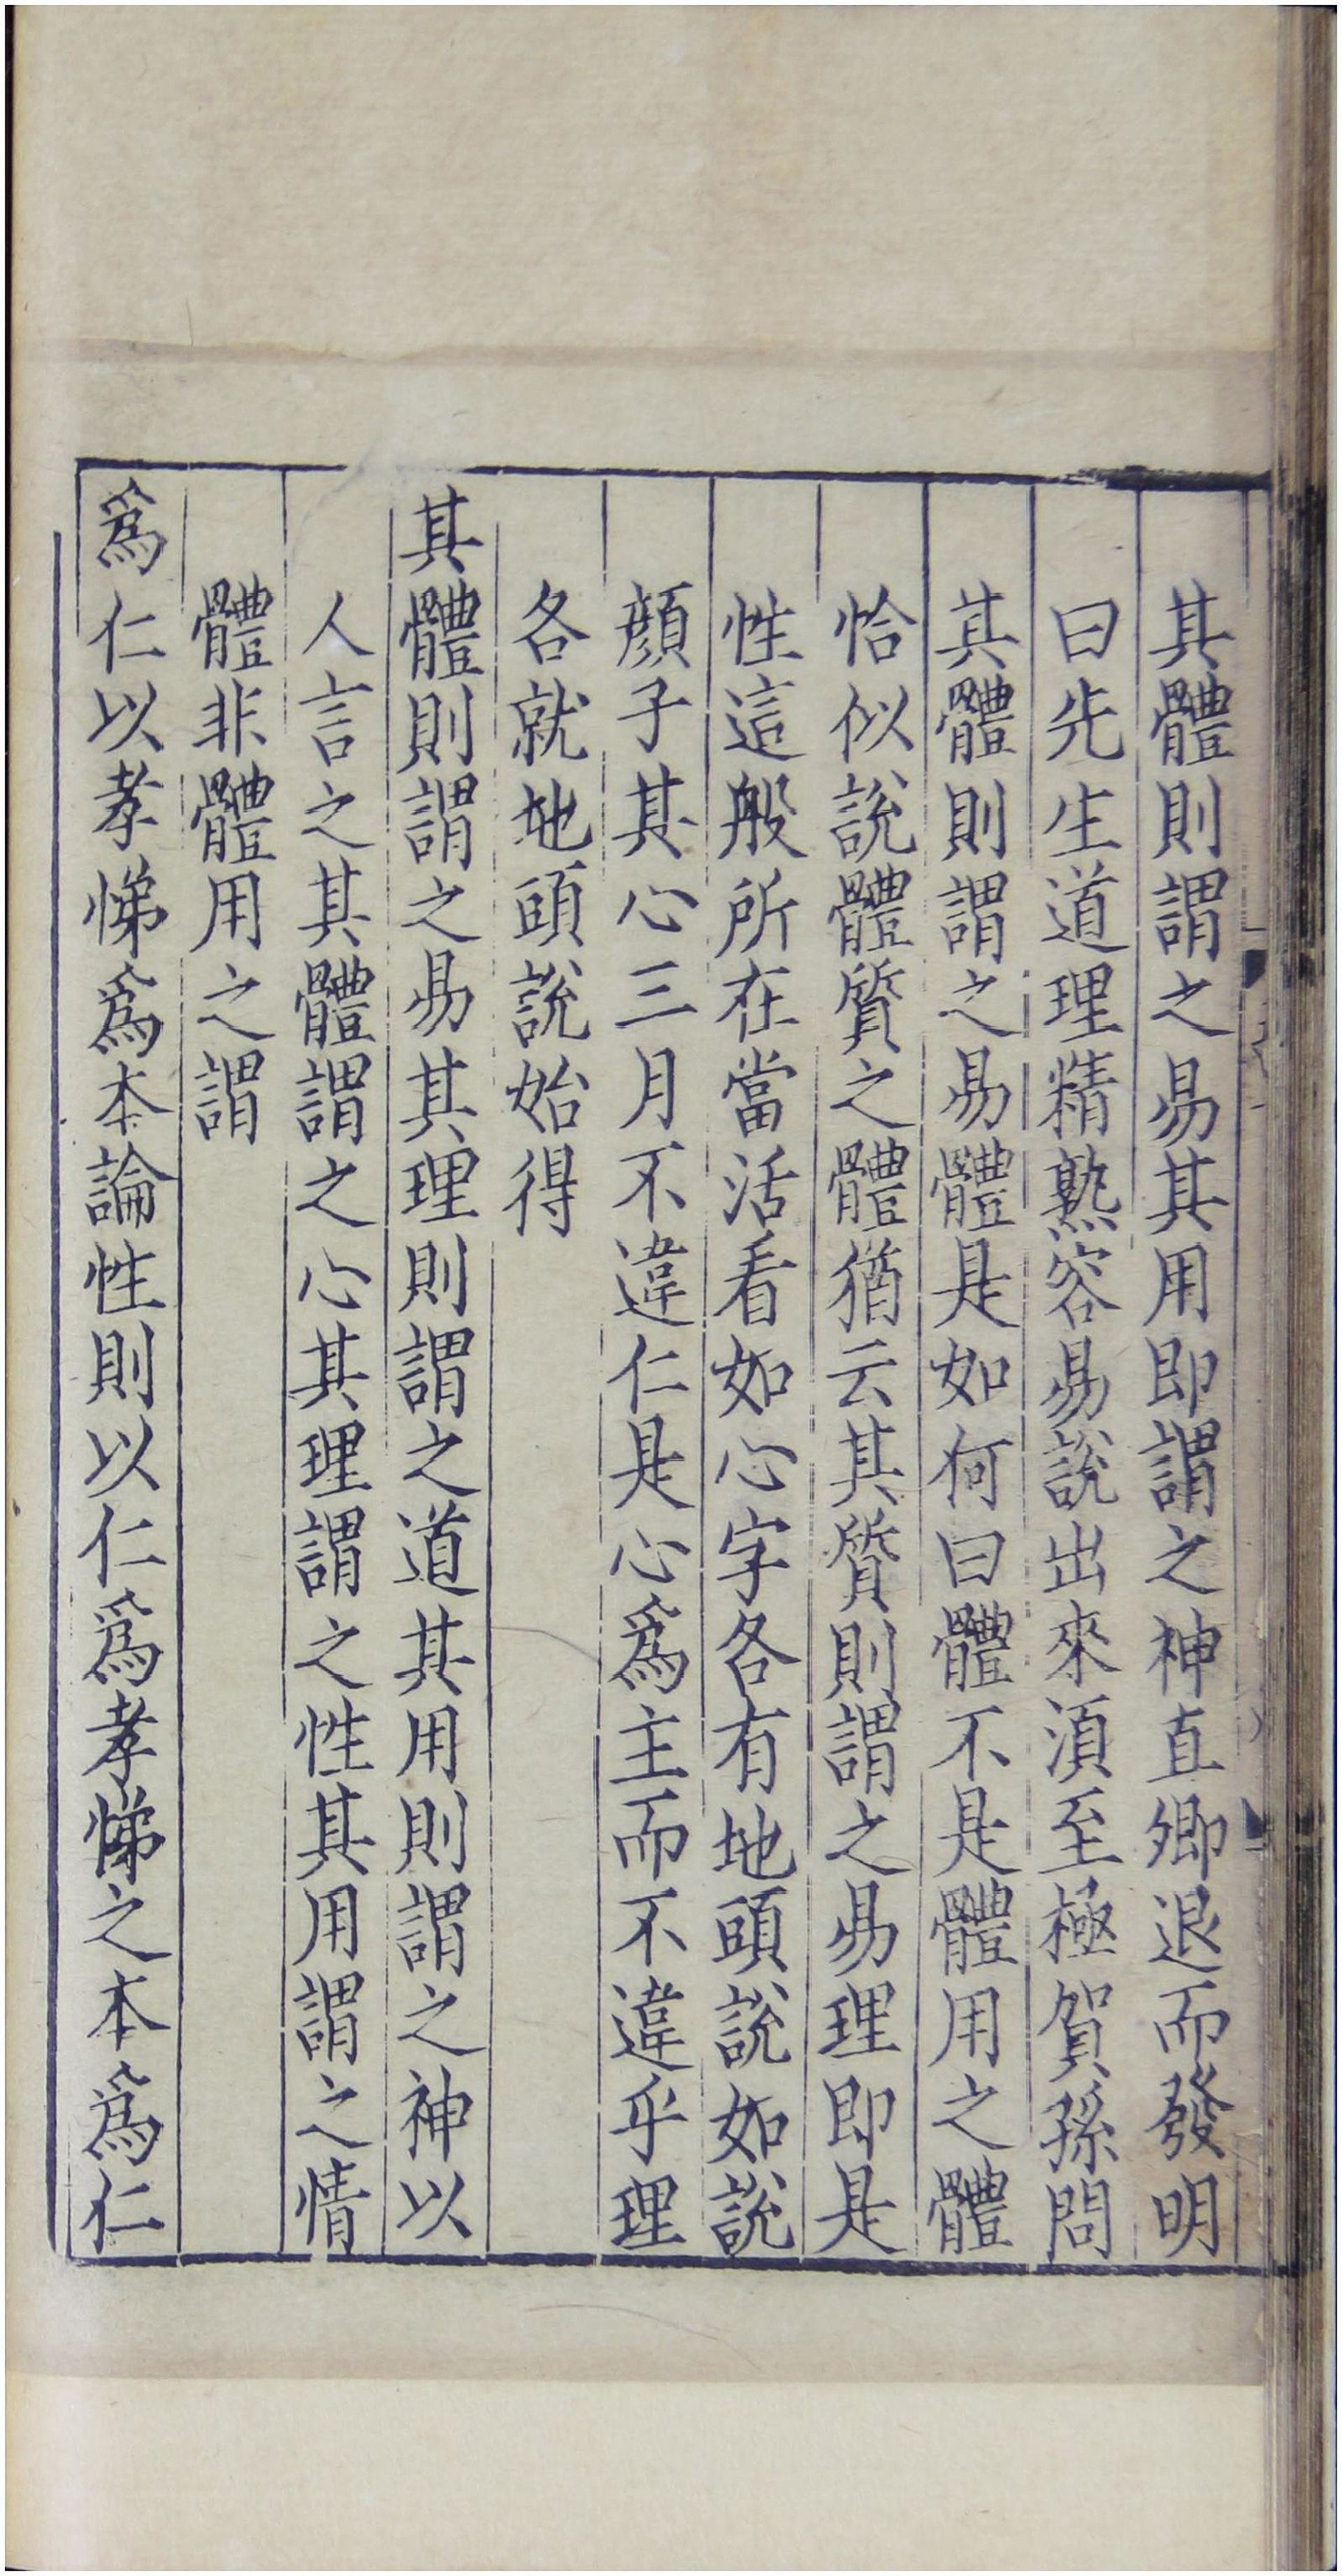 其體則謂之易其用即謂之神直卿退而發明
曰先生道理精熟容易說出來須至極賀孫問
其體則謂之易體是如何曰體不是體用之體
恰似說體質之體猶云其質則謂之易理即是
性這般所在當活看如心字各有地頭說如說
顏子其心三月不違仁是心為主而不違乎理
各就地頭說始得
其體則謂之易其理則謂之道其用則謂之神以
人言之其體謂之心其理謂之性其用謂之情
體非體用之謂
為仁以孝悌為本論性則以仁為孝悌之本為仁